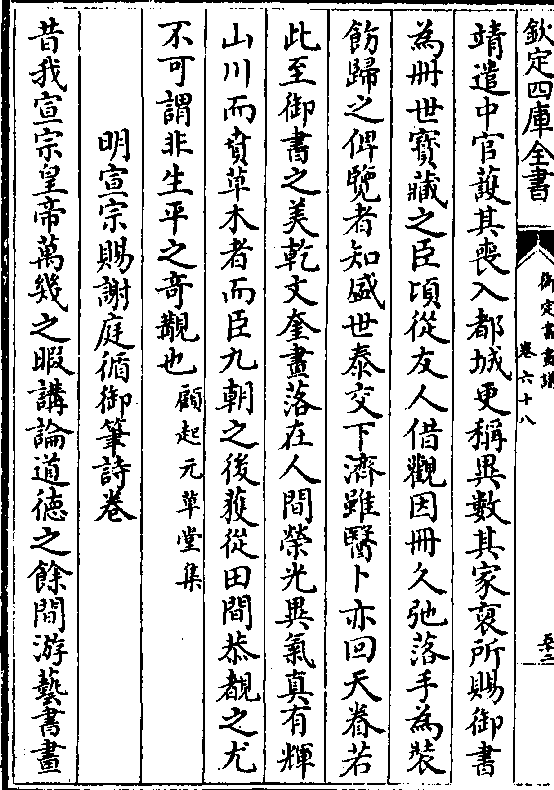 欽定四庫全書
御定書畫譜
卷六十八
靖遣中官護其喪入都城更稱異數其家裒所賜御書
為冊世寳藏之臣頃從友人借觀因冊久弛落手為裝
飭歸之俾覽者知盛世泰交下濟雖醫卜亦回天眷若
此至御書之美乾文奎畫落在人間榮光異氣真有輝
山川而賁草木者而臣九朝之後獲從田間恭覩之尤
不可謂非生平之竒覯也 顧起元草堂集
明宣宗賜謝庭循御筆詩卷
昔我宣宗皇帝萬幾之暇講論道德之餘間游藝書畫